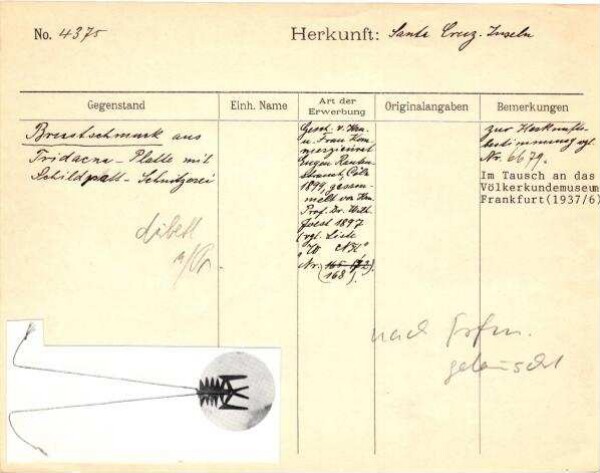 No. 4375
Herkunft: Santa Cruz-Inseln
Gegenstand
Einh. Name
Art der Erwerbung
Originalangaben
Bemerkungen
Brustschmuck aus
Tridacna-Platte mit
Schildpatt-Schnitzerei
Gesch. v. Hrn.
u. Frau Kom-
merzienrat
Eugen Rauten-
strauch, Cöln
1899, gesam-
melt von Hrn.
Prof. Dr. Wilh.
Joest 1897
(vgl. Liste
Nr.
(168).
zur Herkunfts-
bestimmung vgl.
Nr. 6679.
Im Tausch an das
Völkerkundemuseum
Frankfurt(1937/6)
nach Frfm.
getauscht